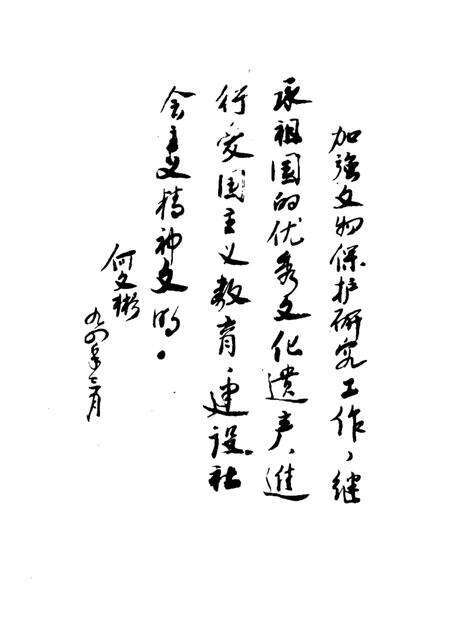 加強文物保护研究工作，继
承祖国的优秀文化遗产、進
行爱国主义教育，建设社
会主义精神文明。
何文彬
九四年三月